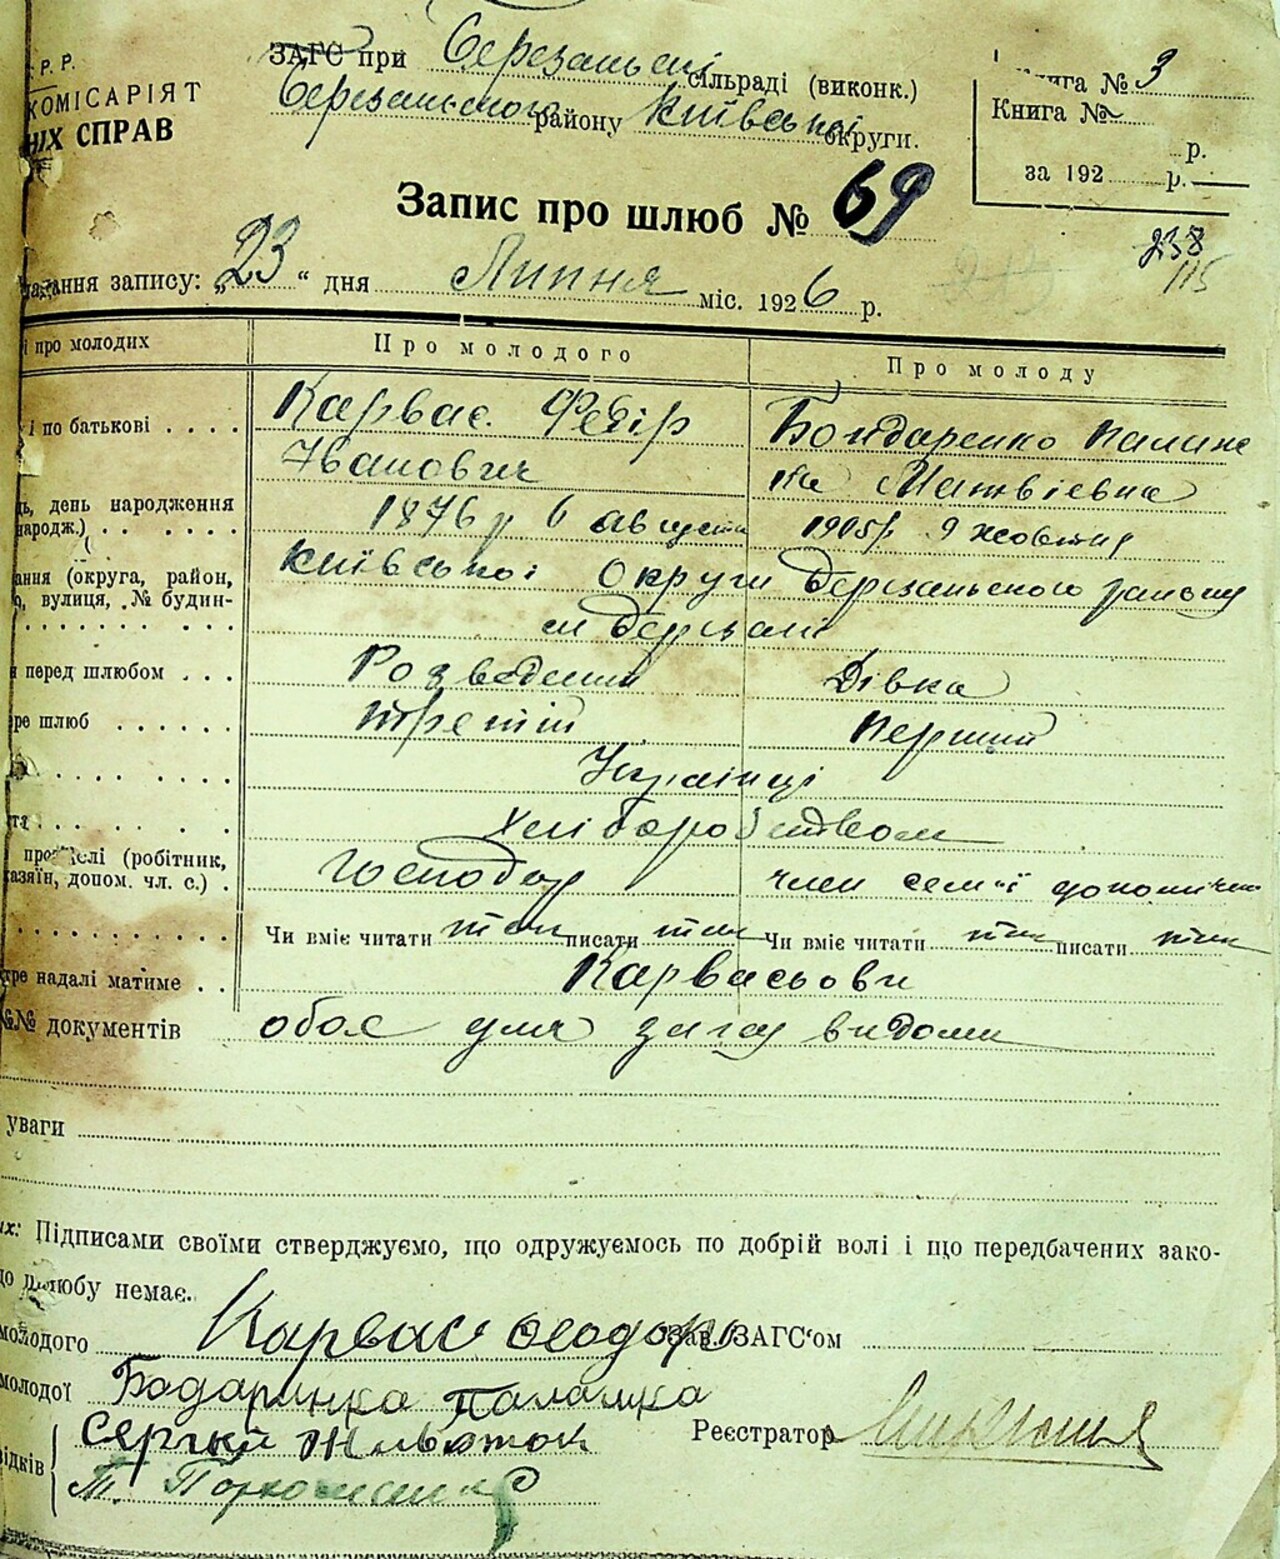 Р. Р.
КОМІСАРІЯТ
НІХ СПРАВ
ЗАГС при Березанській сільраді (виконк.)
Березанського району Київської округи.
Книга № 3
Книга №
р.
за 192 р.
Запис про шлюб № 69
238
115
дання запису: „23“ дня Липня міс. 1926 р.
і про молодих Про молодого Про молоду
і по батькові Карвас Федір Бондаренко Палаж
Іванович ка Матвієвна
день народження
народж.) 1876 р 6 августа 1905 р. 9 жовтня
ання (округа, район, Київської Округи Березанського району
вулиця, № будин-
м Березані
перед шлюбом Розведений Дівка
ре шлюб третій перший
Українці
Хліборобством
про (робітник, Господар член семї допомочен
хазяїн, допом. чл. с.)
Чи вміє читати так писати так Чи вміє читати так писати так
надалі матиме Карвасьови
№№ документів обоє для загсу видоми
уваги
их: Підписами своїми стверджуємо, що одружуємось по добрій волі і що передбачених зако-
до шлюбу немає.
молодого Карвас Феодор Зав. ЗАГС'ом
молодої Бодаринка Паламка
Реєстратор
відків Сергій
Т.